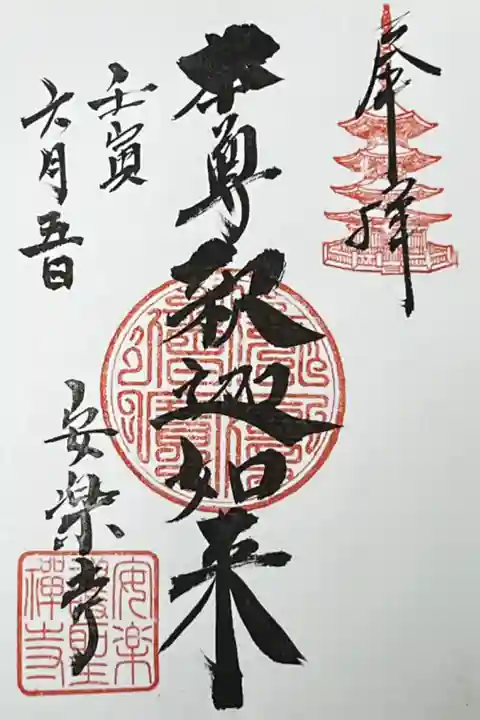 奉拝
本尊釈迦如来
壬寅
六月五日
安楽寺
安楽
護聖
禅寺